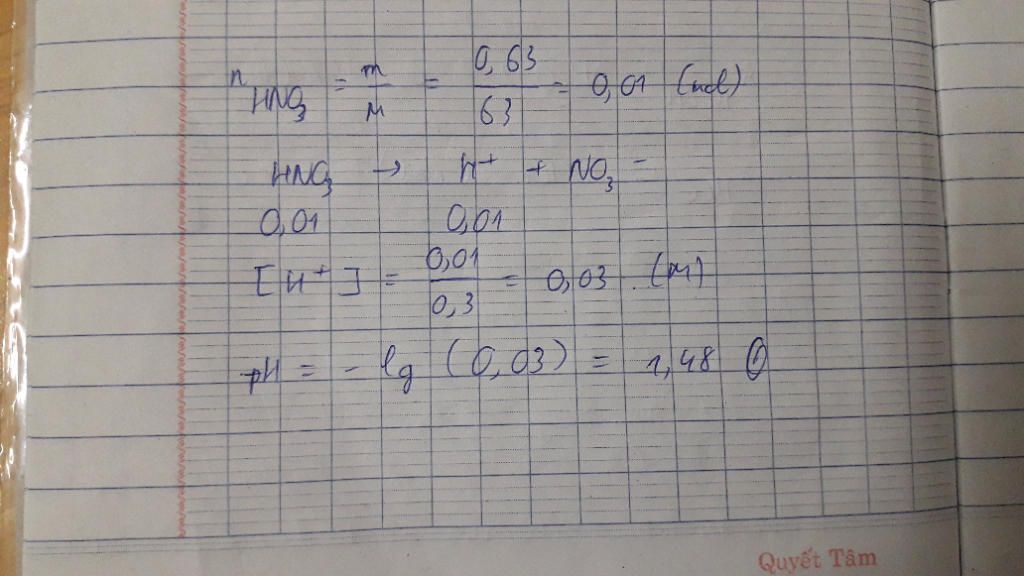 n HNO₃ = m/M = 0,63/63 = 0,01 (mol)
HNO₃ → H⁺ + NO₃⁻
0,01 0,01
[H⁺] = 0,01/0,3 = 0,03 (M)
pH = - lg (0,03) = 1,48
Quyết Tâm